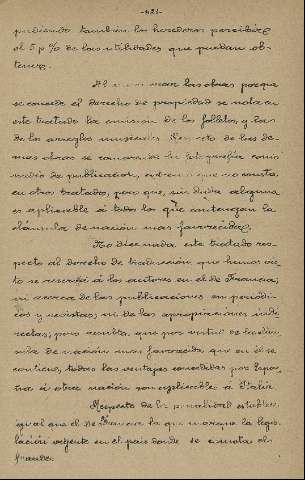 -421-
pudiendo también los herederos percibir
el 5 p% de las utilidades que puedan ob-
tener.
Al mencionar las obras porque
se concede el derecho de propiedad se nota en
este tratado la omisión de los folletos, y las
de los arreglos musicales. Respecto de las de-
mas obras se comprende la fotografía como
medio de publicacion, extremo que no consta
en otros tratados, pero que, sin duda alguna
es aplicable á todos los que contengan la
cláusula de nación mas favorecida.
No dice nada, este tratado res-
pecto al derecho de traducción que hemos vis-
to se reserva á los autores en el de Francia;
ni acerca de las publicaciones en periódi-
cos y revistas, ni de las apropiaciones indi-
rectas; pero resulta, que por virtud de la cláu-
sula de nación mas favorecida que en él se
contiene, todas las ventajas concedidas por Espa-
ña á otra nación son aplicables á Italia
Respecto de la penalidad establece
igual que el de Francia la que marque la legis-
lación vigente en el país donde se cometa el
fraude.